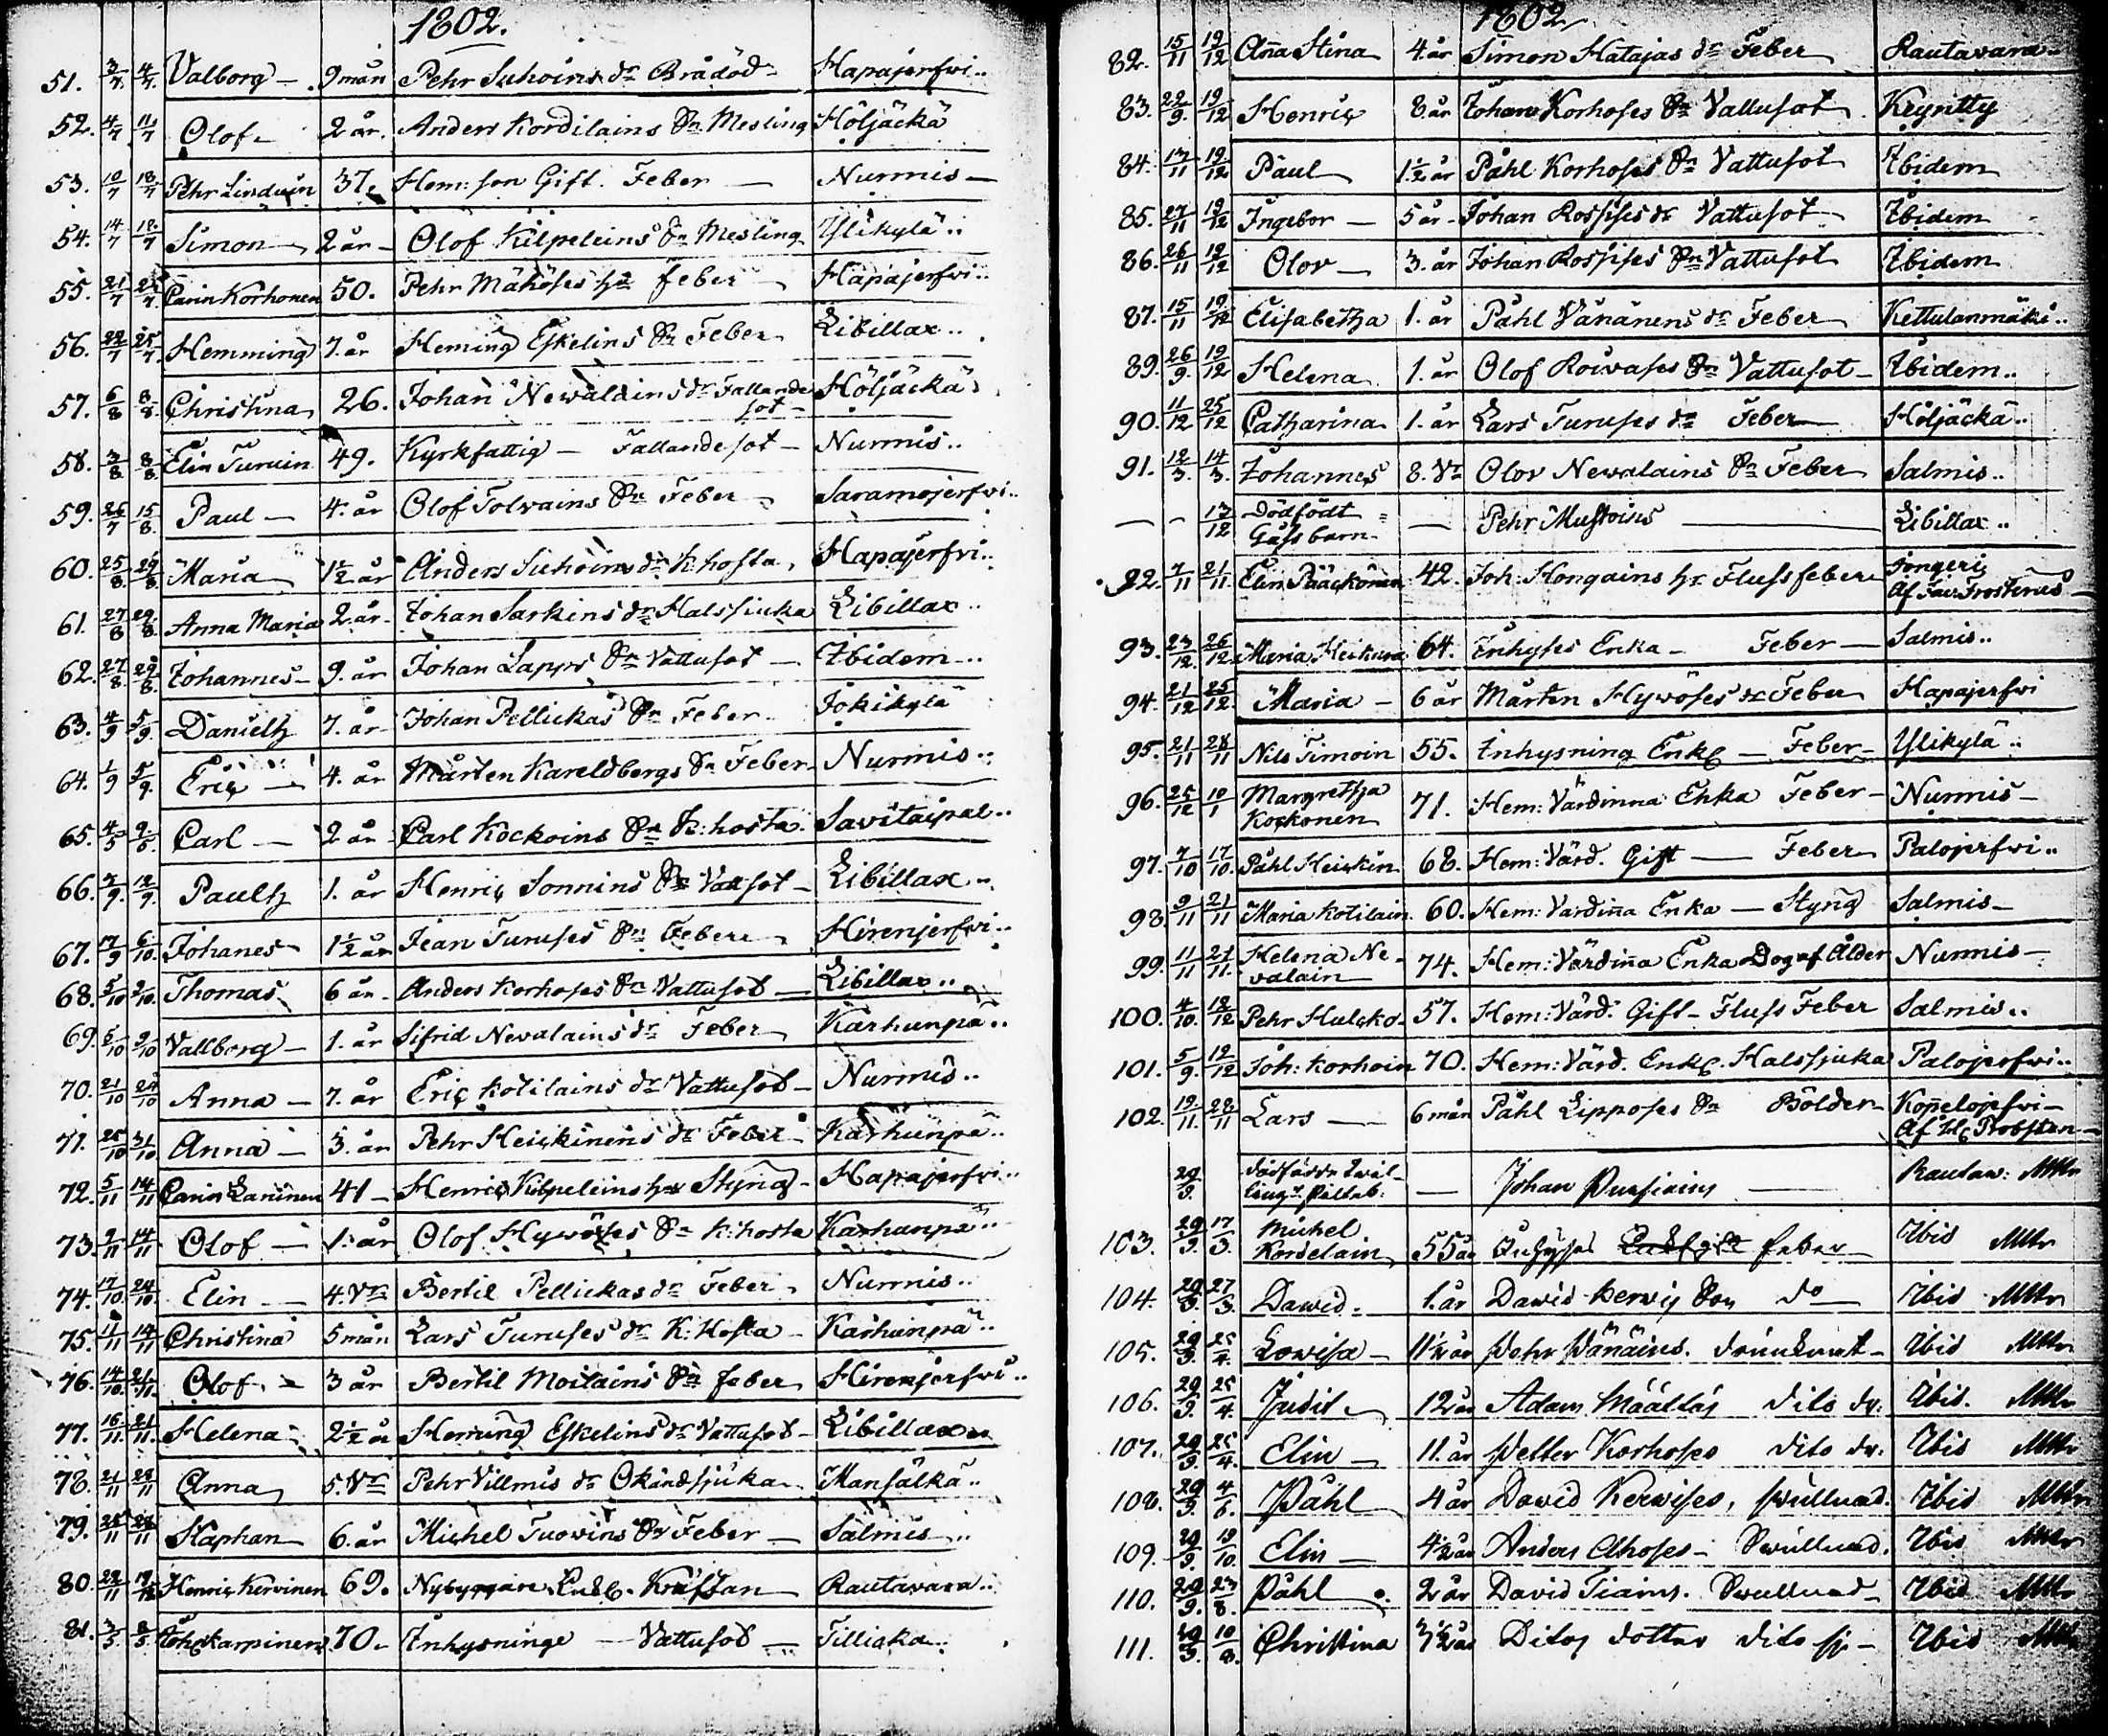 1802.
51. 3/7 4/7 Valborg — 9 mån Pehr Suhoins dr Brådöd — Hapajerfwi..
52. 4/7 11/7 Olof — 2 år. Anders Kordilains Sn Mesling Höljäckä
53. 10/7 18/7 Pehr 37. Hem: son Gift. Feber — Nurmis —
54. 14/7 18/7 Simon 2 år — Olof Kilpeleins Sn Mesling Ylikylä..
55. 21/7 Carin Korhonen 50. Pehr hu feber — Hapajerfwi..
56. 22/7 25/7 Hemming 7. år Heming Eskelins Sn Feber Libillax..
57. 6/8 8/8 Christina 26. Johan Newalains dr Fallande
sot — Höljäckä
58. 3/8 8/8 Elin Turuin 49. Kyrkfattig — Fallandesot — Nurmis..
59. 26/7 15/8 Paul — 4. år Olof Tolvains Sn Feber — Saramojerfwi..
60. 25/8 29/8 Maria 1½ år Anders Suhoins dr K:hosta, Hapajerfwi..
61. 27/8 29/8 Anna Maria 2. år Johan Sarkins dr Halssiuka Libillax..
62. 27/8 29/8 Johannes — 9. år Johan Lapps Sn Vattusot — Ibidem..
63. 4/9 5/9 Danielh 7. år Johan Pellickas Sn Feber — Jokikylä
64. 1/9 5/9 Eric — 4. år Mårten Kareldbergs Sn Feber — Nurmis..
65. 4/5 9/5 Carl — 2 år Carl Kockoins Sn K:hosta. Savitaipal..
66. 7/9 12/9 Paulh 1. år Henric Sonnins Sn Vattsot — Libillax..
67. 17/9 6/10 Johanes 1½ år Jean Turuses Sn Feber Hirenjerfwi..
68. 5/10 9/10 Thomas 6 år — Anders Korhoses Sn Vattusot — Libillax..
69. 5/10 9/10 Vallborg — 1. år Sifrid Nevalains dr Feber Karhunpä..
70. 21/10 24/10 Anna — 7. år Eric Kotilains dr Vattusot — Nurmis..
71. 25/10 31/10 Anna — 3. år Pehr Heickinens dr Feber — Karhunpä..
72. 5/11 14/11 Carin Laninen 41 — Henric Kilpeleins hu Styng — Hapajerfwi..
73. 9/11 14/11 Olof — 1. år Olof Hywöses Sn K:hosta Karhunpä..
74. 17/10 24/10 Elin — 4. Vr Bertil Pellickas dr Feber Nurmis..
75. 11/11 14/11 Christina 5 mån Lars Turuses dr K:Hosta — Karhunpä..
76. 14/10 21/11 Olof. — 3 år Bertil Moilains Sn feber Hirenjerfwi..
77. 16/11 21/11 Helena 2½ år Heming Eskelins dr Vattusot — Libillax
78. 21/11 28/11 Anna 5. Vr Pehr Villmis dr Okändsjuka Mansälkä..
79. 25/11 28/11 Staphan 6. år Michel Tuovins Sn Feber — Salmis..
80. 22/11 Henric Kervinen 69. Nybyggare Enkl. Kräftan Rautavara..
81. 3/5 8/5 Joh: Karpinen 70. Inhysninge — Vattusot — Tilliaka..
1802
82. 15/11 19/12 Anna Stina 4. år Simon Hatajas dr Feber Rautavara
83. 22/9 19/12 Henric 8. år Johan Korhoses Sn Vattusot Keyritty
84. 17/11 19/12 Paul 1½ år Påhl Korhoses Sn Vattusot Ibidem
85. 27/11 19/12 Ingebor — 5 år — Johan Rossises dr Vattusot Ibidem
86. 26/11 19/12 Olov — 3. år Johan Rossises Sn Vattusot Ibidem
87. 15/11 19/12 Elisabetha 1. år Påhl Vänänens dr Feber Kettulanmäki..
89. 26/9 19/12 Helena 1. år Olof Roivases Sn Vattusot — Ibidem..
90. 11/12 25/12 Catharina 1. år Lars Turuses dr Feber Höljäckä..
91. 12/3 14/3 Johannes 8. Vr Olov Newalains Sn Feber Salmis..
— — 17/12 Dödfödt
Gåssbarn — Pehr Mustoins — Libillax..
92. 7/11 21/11 Elin Pääckönen 42. Joh. Hongains hr Flussfeber Jongeri
Af Frosterus
93. 23/12 26/12 Maria Heickura 64. Inhyses Enka — Feber — Salmis..
94. 21/12 25/12 Maria — 6 år Mårten Hywöses dr Feber Hapajerfwi
95. 21/11 28/11 Nils Timoin 55. Inhysning Enkl — Feber — Ylikylä..
96. 25/12 10/1 Margretha
Kockonen 71. Hem: Värdinna Enka Feber — Nurmis —
97. 7/10 17/10 Påhl Heickin 68. Hem: Värd. Gift — Feber Palojerfwi..
98. 9/11 21/11 Maria Kotilain 60. Hem: Värdinna Enka — Styng Salmis —
99. 11/11 21/11 Helena Ne-
valain 74. Hem: Värdinna Enka Dog af Ålder Nurmis —
100. 4/10 12/12 Pehr Hulcko- 57. Hem: Värd. Gift — Fluss Feber Salmis..
101. 5/9 12/12 Joh: Korhoin 70. Hem: Värd. Enkl. Halssjuka Palojerfwi..
102. 19/11 28/11 Lars — 6 mån Påhl Lipposes Sn Bölder Kopelojerfwi —
Af Probsten —
29/9 dödfödde Twil-
ling — Johan — Rautaw: Mttr
103. 29/9 17/3 Michel
Kordelain 55 år Inhyses feber — Ibid Mttr
104. 29/9 27/3 Dawid — 1. år Dawid Kerwis Son do — Ibid Mttr
105. 29/9 25/4 Lowisa — 11½ år Pehr Wänäins. drunknat — Ibid Mttr
106. 29/9 25/4 Judit 12 år Adam Määttäs dito dr. Ibid. Mttr
107. 29/9 25/4 Elin — 11. år Petter Korhoses dito dr. Ibid Mttr
108. 29/9 4/6 Påhl 4 år Dawid Kerwises, swullnad. Ibid Mttr
109. 29/9 19/10 Elin — 4½ år Anders Ahoses — Swullnad. Ibid Mttr
110. 29/9 23/8 Påhl 2 år David Tiains. Swullnad — Ibid Mttr
111. 10/8 Christina 7½ år Ditos dotter dito sj — Ibid Mttr